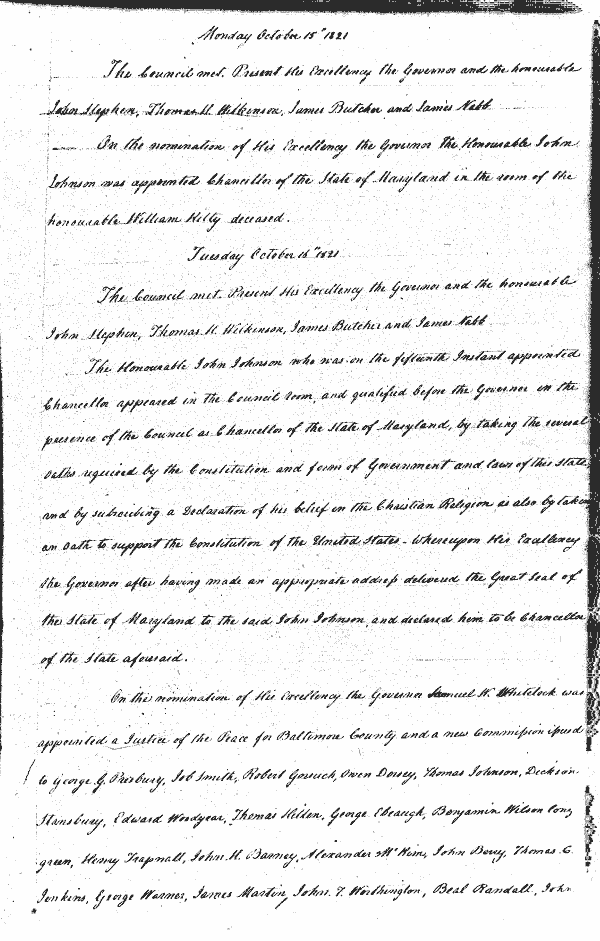 Monday October 15th 1821
The Council met. Present His Excellency the Governor and the honourable
John Stephen, Thomas H. Wilkinson, James Butcher and James Nabb
On the nomination of His Excellency the Governor the Honourable John
Johnson was appointed Chancellor of the State of Maryland in the room of the
honourable William Kilty deceased.
Tuesday October 16th 1821
The Council met. Present His Excellency the Governor and the honourable
John Stephen, Thomas H. Wilkinson, James Butcher and James Nabb
The Honourable John Johnson who was on the fifteenth Instant appointed
Chancellor appeared in the Council room, and qualified before the Governor in the
presence of the Council as Chancellor of the State of Maryland, by taking the several
oaths required by the Constitution and form of Government and laws of this State,
and by subscribing a Declaration of his belief in the Christian Religion as also by taken
an oath to support the Constitution of the United States - whereupon His Excellency
the Governor after having made an appropriate address delivered the Great Seal of
the State of Maryland to the said John Johnson, and declared him to be Chancellor
of the State aforesaid.
On the nomination of His Excellency the Governor Samuel W. Whitelock was
appointed a Justice of the Peace for Baltimore County and a new Commission issued
to George G. Presbury, Job Smith, Robert Gorsuch, Owen Dorsey, Thomas Johnson, Dickson
Stansbury, Edward Woodyear, Thomas Hilden, George Ebaugh, Benjamin Wilson Cong
green, Henry Trapnall, John H. Barney, Alexander McKim, John Berry, Thomas C.
Jenkins, George Warner, James Martin, John T. Worthington, Beal Randall, John